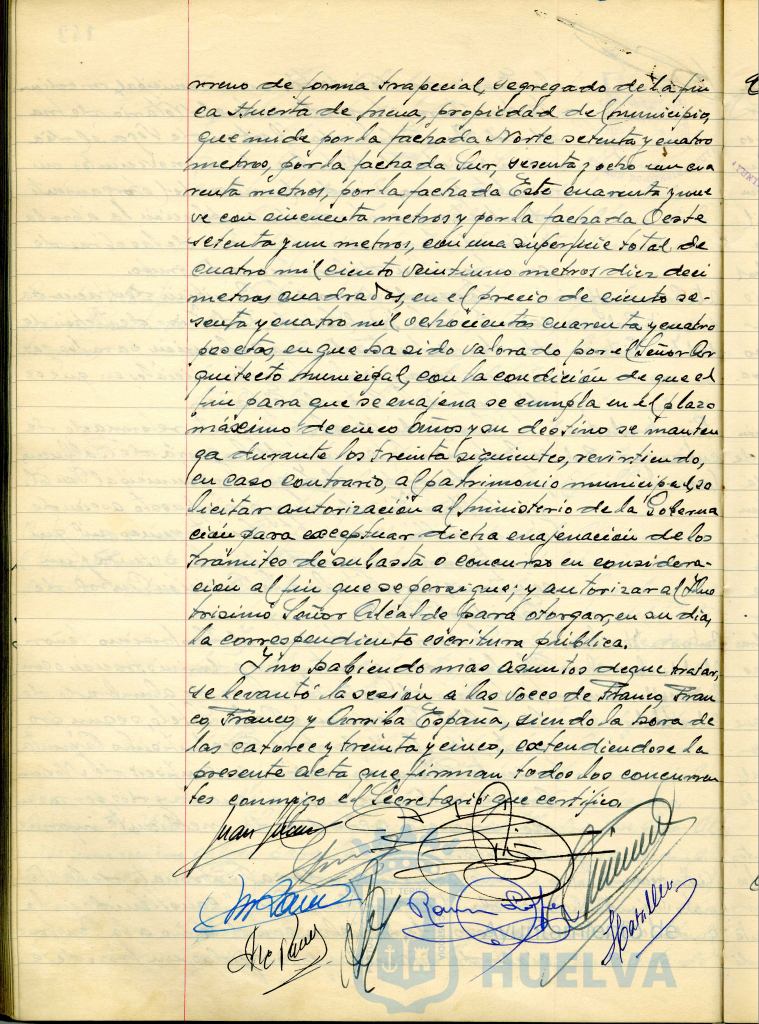 rreno de forma trapecial, segregado de la fin
ca Huerta de Mena, propiedad del municipio,
que mide por la fachada Norte setenta y cuatro
metros, por la fachada Sur, sesenta y ocho con cua
renta metros, por la fachada Este cuarenta y nue
ve con cincuenta metros y por la fachada Oeste
setenta y un metros, con una superficie total de
cuatro mil ciento veintiuno metros diez decí
metros cuadrados, en el precio de ciento se-
senta y cuatro mil ochocientas cuarenta y cuatro
pesetas, en que ha sido valorado por el Señor Ar
quitecto Municipal, con la condición de que el
fin para que se enajena se cumpla en el plazo
máximo de cinco años y su destino se manten
ga durante los treinta siguientes, revirtiendo,
en caso contrario, al patrimonio municipal, so
licitar autorización al Ministerio de la Goberna
ción para exceptuar dicha enajenación de los
trámites de subasta o concurso en considera-
ción al fin que se persigue; y autorizar al Ilus
trísimo Señor Alcalde para otorgar, en su día,
la correspondiente escritura pública.
Y no habiendo mas asuntos de que tratar,
se levantó la sesión a las voces de Franco, Fran
co, Franco y Arriba España, siendo la hora de
las catorce y treinta y cinco, extendiendose la
presente acta que firman todos los concurren
tes conmigo el Secretario que certifico.
Juan
Ramon Lopez
Ayuntamiento de
HUELVA